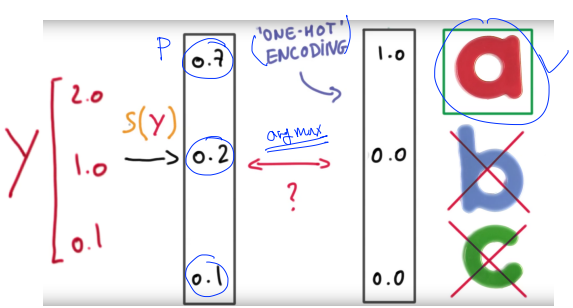 Y
2.0
1.0
0.1
S(Y)
P
0.7
0.2
0.1
'ONE-HOT'
ENCODING
argmax
?
1.0
0.0
0.0
a
b
c